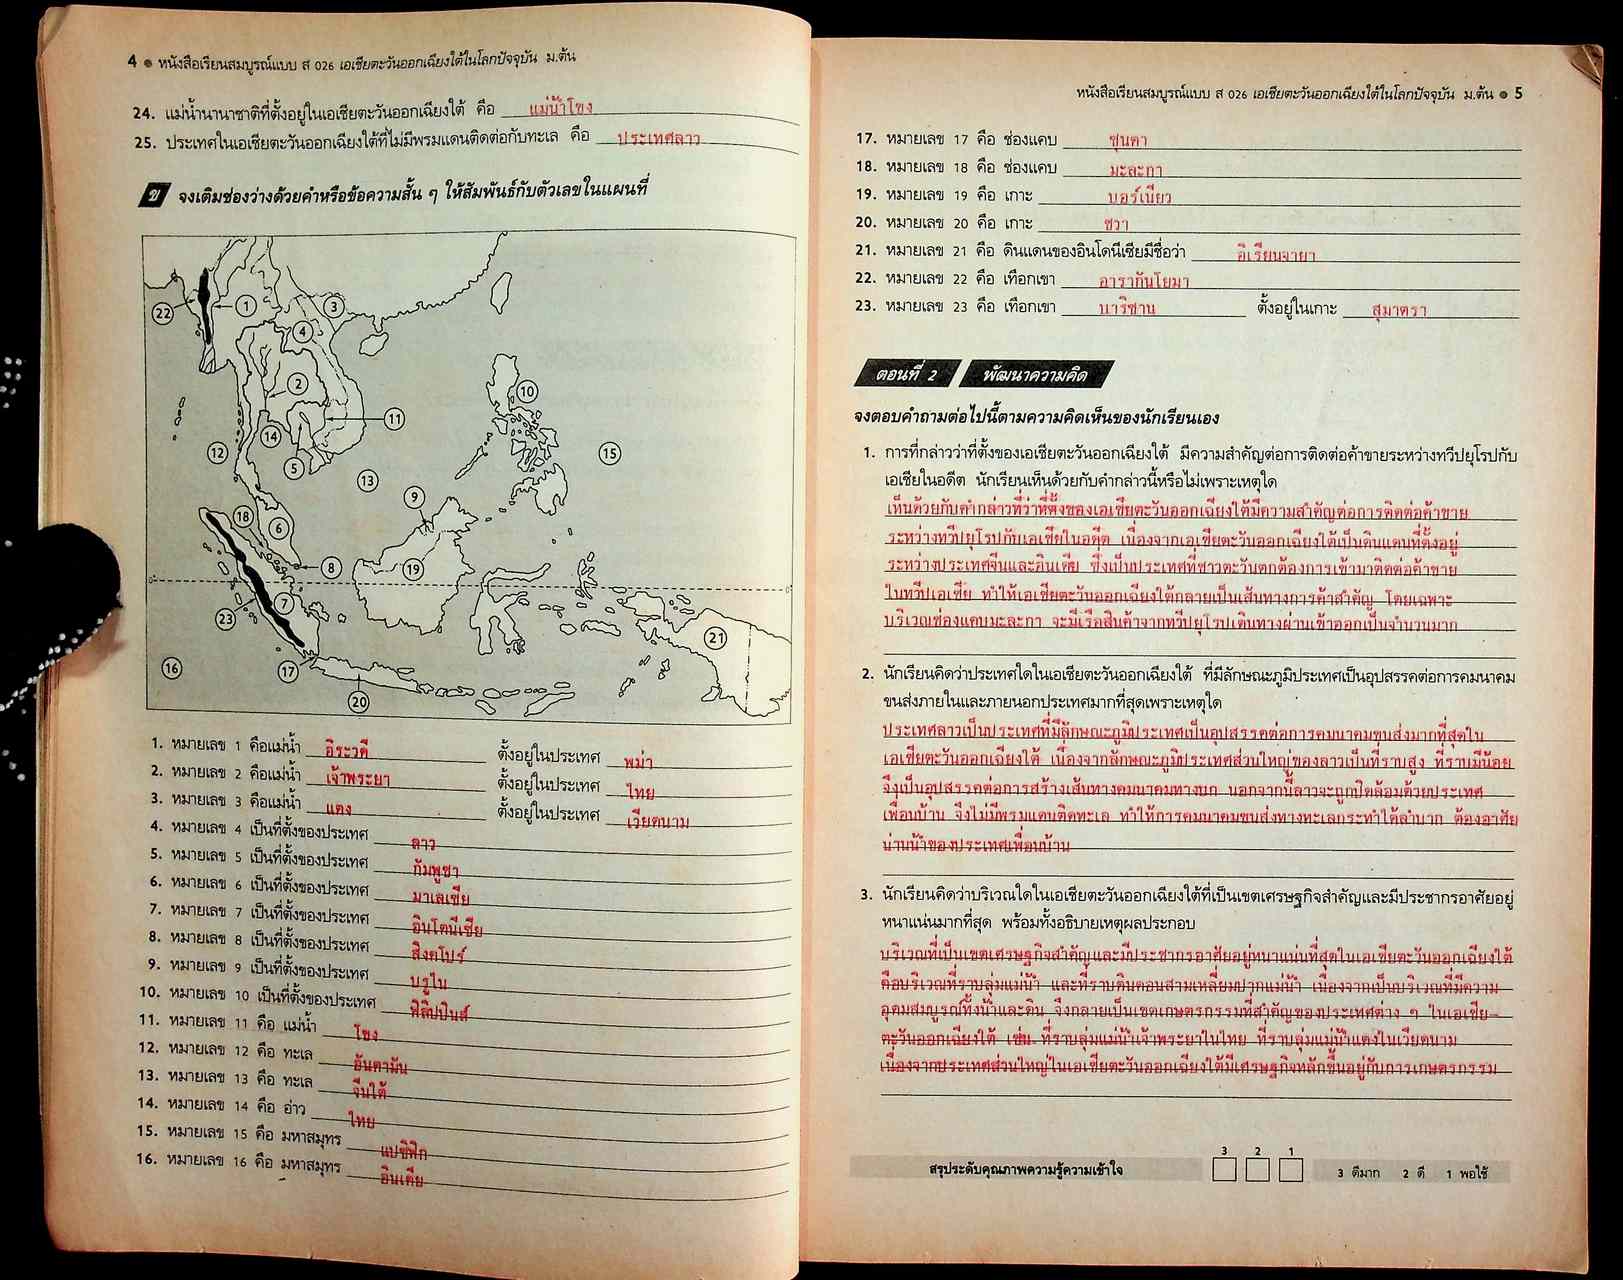 4 ● หนังสือเรียนสมบูรณ์แบบ ส 026 เอเชียตะวันออกเฉียงใต้ในโลกปัจจุบัน ม.ต้น
24. แม่น้ำนานาชาติที่ตั้งอยู่ในเอเชียตะวันออกเฉียงใต้ คือ แม่น้ำโขง
25. ประเทศในเอเชียตะวันออกเฉียงใต้ที่ไม่มีพรมแดนติดต่อกับทะเล คือ ประเทศลาว
ข จงเติมช่องว่างด้วยคำหรือข้อความสั้น ๆ ให้สัมพันธ์กับตัวเลขในแผนที่
22 1 3
4
2
10
11
14
12 5 15
13
9
18 6
8 19
0° 0°
7
23 21
16 17
20
1. หมายเลข 1 คือแม่น้ำ อิระวดี ตั้งอยู่ในประเทศ พม่า
2. หมายเลข 2 คือแม่น้ำ เจ้าพระยา ตั้งอยู่ในประเทศ ไทย
3. หมายเลข 3 คือแม่น้ำ แดง ตั้งอยู่ในประเทศ เวียดนาม
4. หมายเลข 4 เป็นที่ตั้งของประเทศ ลาว
5. หมายเลข 5 เป็นที่ตั้งของประเทศ กัมพูชา
6. หมายเลข 6 เป็นที่ตั้งของประเทศ มาเลเซีย
7. หมายเลข 7 เป็นที่ตั้งของประเทศ อินโดนีเซีย
8. หมายเลข 8 เป็นที่ตั้งของประเทศ สิงคโปร์
9. หมายเลข 9 เป็นที่ตั้งของประเทศ บรูไน
10. หมายเลข 10 เป็นที่ตั้งของประเทศ ฟิลิปปินส์
11. หมายเลข 11 คือ แม่น้ำ โขง
12. หมายเลข 12 คือ ทะเล อันดามัน
13. หมายเลข 13 คือ ทะเล จีนใต้
14. หมายเลข 14 คือ อ่าว ไทย
15. หมายเลข 15 คือ มหาสมุทร แปซิฟิก
16. หมายเลข 16 คือ มหาสมุทร อินเดีย
หนังสือเรียนสมบูรณ์แบบ ส 026 เอเชียตะวันออกเฉียงใต้ในโลกปัจจุบัน ม.ต้น ● 5
17. หมายเลข 17 คือ ช่องแคบ ซุนดา
18. หมายเลข 18 คือ ช่องแคบ มะละกา
19. หมายเลข 19 คือ เกาะ บอร์เนียว
20. หมายเลข 20 คือ เกาะ ชวา
21. หมายเลข 21 คือ ดินแดนของอินโดนีเซียมีชื่อว่า อิเรียนจายา
22. หมายเลข 22 คือ เทือกเขา อารากันโยมา
23. หมายเลข 23 คือ เทือกเขา บาริซาน ตั้งอยู่ในเกาะ สุมาตรา
ตอนที่ 2 พัฒนาความคิด
จงตอบคำถามต่อไปนี้ตามความคิดเห็นของนักเรียนเอง
1. การที่กล่าวว่าที่ตั้งของเอเชียตะวันออกเฉียงใต้ มีความสำคัญต่อการติดต่อค้าขายระหว่างทวีปยุโรปกับ
เอเชียในอดีต นักเรียนเห็นด้วยกับคำกล่าวนี้หรือไม่เพราะเหตุใด
เห็นด้วยกับคำกล่าวที่ว่าที่ตั้งของเอเชียตะวันออกเฉียงใต้มีความสำคัญต่อการติดต่อค้าขาย
ระหว่างทวีปยุโรปกับเอเชียในอดีต เนื่องจากเอเชียตะวันออกเฉียงใต้เป็นดินแดนที่ตั้งอยู่
ระหว่างประเทศจีนและอินเดีย ซึ่งเป็นประเทศที่ชาวตะวันตกต้องการเข้ามาติดต่อค้าขาย
ในทวีปเอเชีย ทำให้เอเชียตะวันออกเฉียงใต้กลายเป็นเส้นทางการค้าสำคัญ โดยเฉพาะ
บริเวณช่องแคบมะละกา จะมีเรือสินค้าจากทวีปยุโรปเดินทางผ่านเข้าออกเป็นจำนวนมาก
2. นักเรียนคิดว่าประเทศใดในเอเชียตะวันออกเฉียงใต้ ที่มีลักษณะภูมิประเทศเป็นอุปสรรคต่อการคมนาคม
ขนส่งภายในและภายนอกประเทศมากที่สุดเพราะเหตุใด
ประเทศลาวเป็นประเทศที่มีลักษณะภูมิประเทศเป็นอุปสรรคต่อการคมนาคมขนส่งมากที่สุดใน
เอเชียตะวันออกเฉียงใต้ เนื่องจากลักษณะภูมิประเทศส่วนใหญ่ของลาวเป็นที่ราบสูง ที่ราบมีน้อย
จึงเป็นอุปสรรคต่อการสร้างเส้นทางคมนาคมทางบก นอกจากนี้ลาวจะถูกปิดล้อมด้วยประเทศ
เพื่อนบ้าน จึงไม่มีพรมแดนติดทะเล ทำให้การคมนาคมขนส่งทางทะเลกระทำได้ลำบาก ต้องอาศัย
น่านน้ำของประเทศเพื่อนบ้าน
3. นักเรียนคิดว่าบริเวณใดในเอเชียตะวันออกเฉียงใต้ที่เป็นเขตเศรษฐกิจสำคัญและมีประชากรอาศัยอยู่
หนาแน่นมากที่สุด พร้อมทั้งอธิบายเหตุผลประกอบ
บริเวณที่เป็นเขตเศรษฐกิจสำคัญและมีประชากรอาศัยอยู่หนาแน่นที่สุดในเอเชียตะวันออกเฉียงใต้
คือบริเวณที่ราบลุ่มแม่น้ำ และที่ราบดินดอนสามเหลี่ยมปากแม่น้ำ เนื่องจากเป็นบริเวณที่มีความ
อุดมสมบูรณ์ทั้งน้ำและดิน จึงกลายเป็นเขตเกษตรกรรมที่สำคัญของประเทศต่าง ๆ ในเอเชีย-
ตะวันออกเฉียงใต้ เช่น ที่ราบลุ่มแม่น้ำเจ้าพระยาในไทย ที่ราบลุ่มแม่น้ำแดงในเวียดนาม
เนื่องจากประเทศส่วนใหญ่ในเอเชียตะวันออกเฉียงใต้มีเศรษฐกิจหลักขึ้นอยู่กับการเกษตรกรรม
3 2 1
สรุประดับคุณภาพความรู้ความเข้าใจ 3 ดีมาก 2 ดี 1 พอใช้